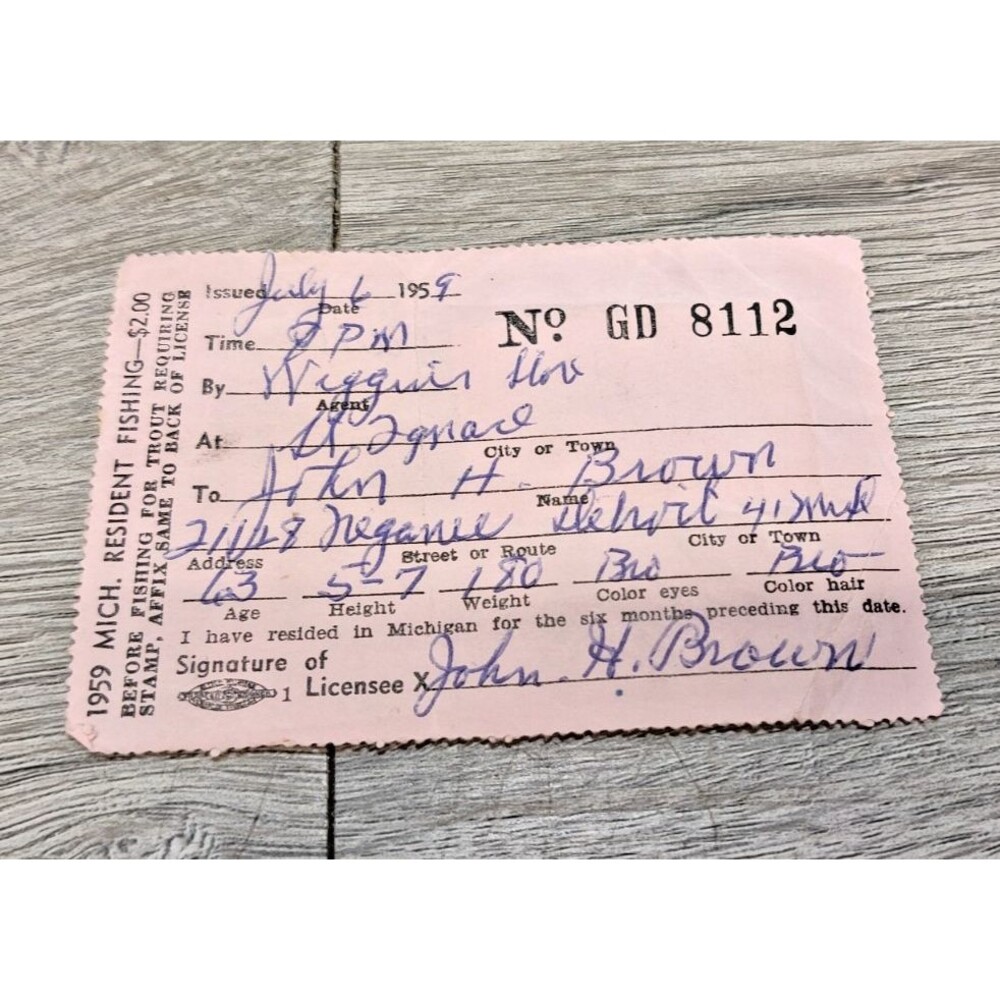 1959 MICH. RESIDENT FISHING—$2.00
BEFORE FISHING FOR TROUT REQUIRING
STAMP, AFFIX SAME TO BACK OF LICENSE
Issued July 6 1959
Date
No GD 8112
Time PM
By Wiggins
Agent
At St. Ignace
City or Town
To John H. Brown
Name
Detroit 41
Address Street or Route City or Town
63 5-7 180 Bro Bro
Age Height Weight Color eyes Color hair
I have resided in Michigan for the six months preceding this date.
Signature of
1 Licensee X John. H. Brown